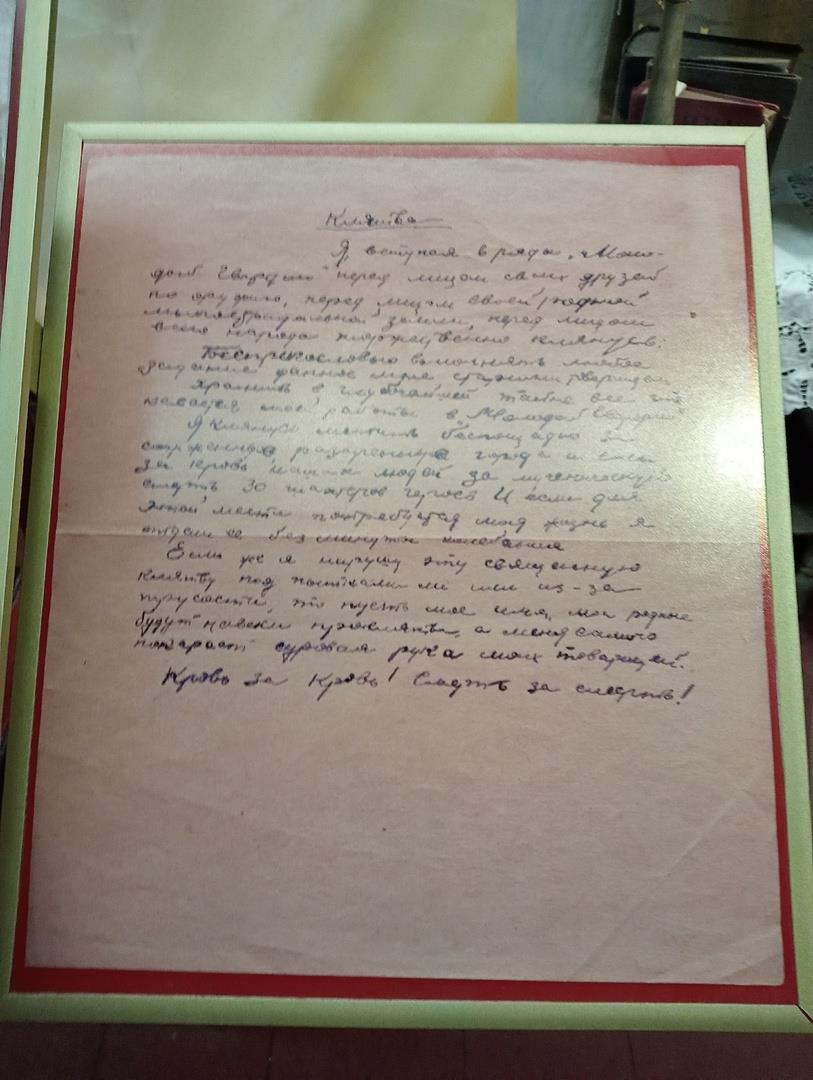 Клятва
Я, вступая в ряды „Моло-
дой Гвардии" перед лицом своих друзей
по оружию, перед лицом своей родной
многострадальной земли, перед лицом
всего народа торжественно клянусь:
Беспрекословно выполнять любое
задание данное мне старшим товарищем
хранить в глубочайшей тайне все что
касается моей работы в „Молодой Гвардии"
Я клянусь мстить беспощадно за
сожженные, разоренные города и села
за кровь наших людей за мученическую
смерть 30 шахтеров героев И если для
этой мести потребуется моя жизнь я
отдам ее без минуты колебания
Если же я нарушу эту священную
клятву под пытками ли или из-за
трусости, то пусть мое имя, мои родные
будут навеки прокляты, а меня самого
покарает суровая рука моих товарищей.
Кровь за Кровь! Смерть за смерть!